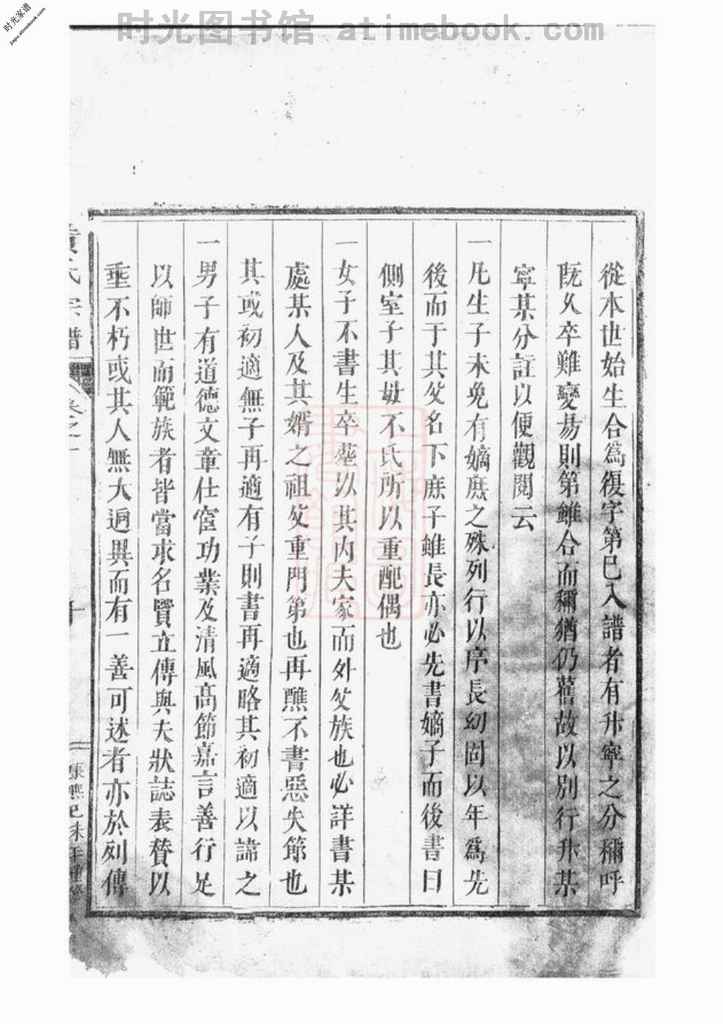 时光图书馆 atimebook.com
时光家谱
jiapu.atimebook.com
從本世始生合爲復字第已入譜者有升寧之分稱呼
既久卒難變易則第雖合而稱猶仍舊故以別行升某
寧某分註以便觀閱云
一凡生子未免有嫡庶之殊列行以序長幼固以年爲先
後而于其父名下庶子雖長亦必先書嫡子而後書曰
側室子其妣不氏所以重配偶也
一女子不書生卒塟以其内夫家而外父族也必詳書某
處某人及其婿之祖父重門第也再醮不書惡失節也
其或初適無子再適有子則書再適略其初適以諱之
一男子有道德文章仕宦功業及清風高節嘉言善行足
以師世而範族者皆當求名賢立傳與夫狀誌表贊以
垂不朽或其人無大過異而有一善可述者亦於列傳
氏宗譜
卷之一
十
康熙己未年重修